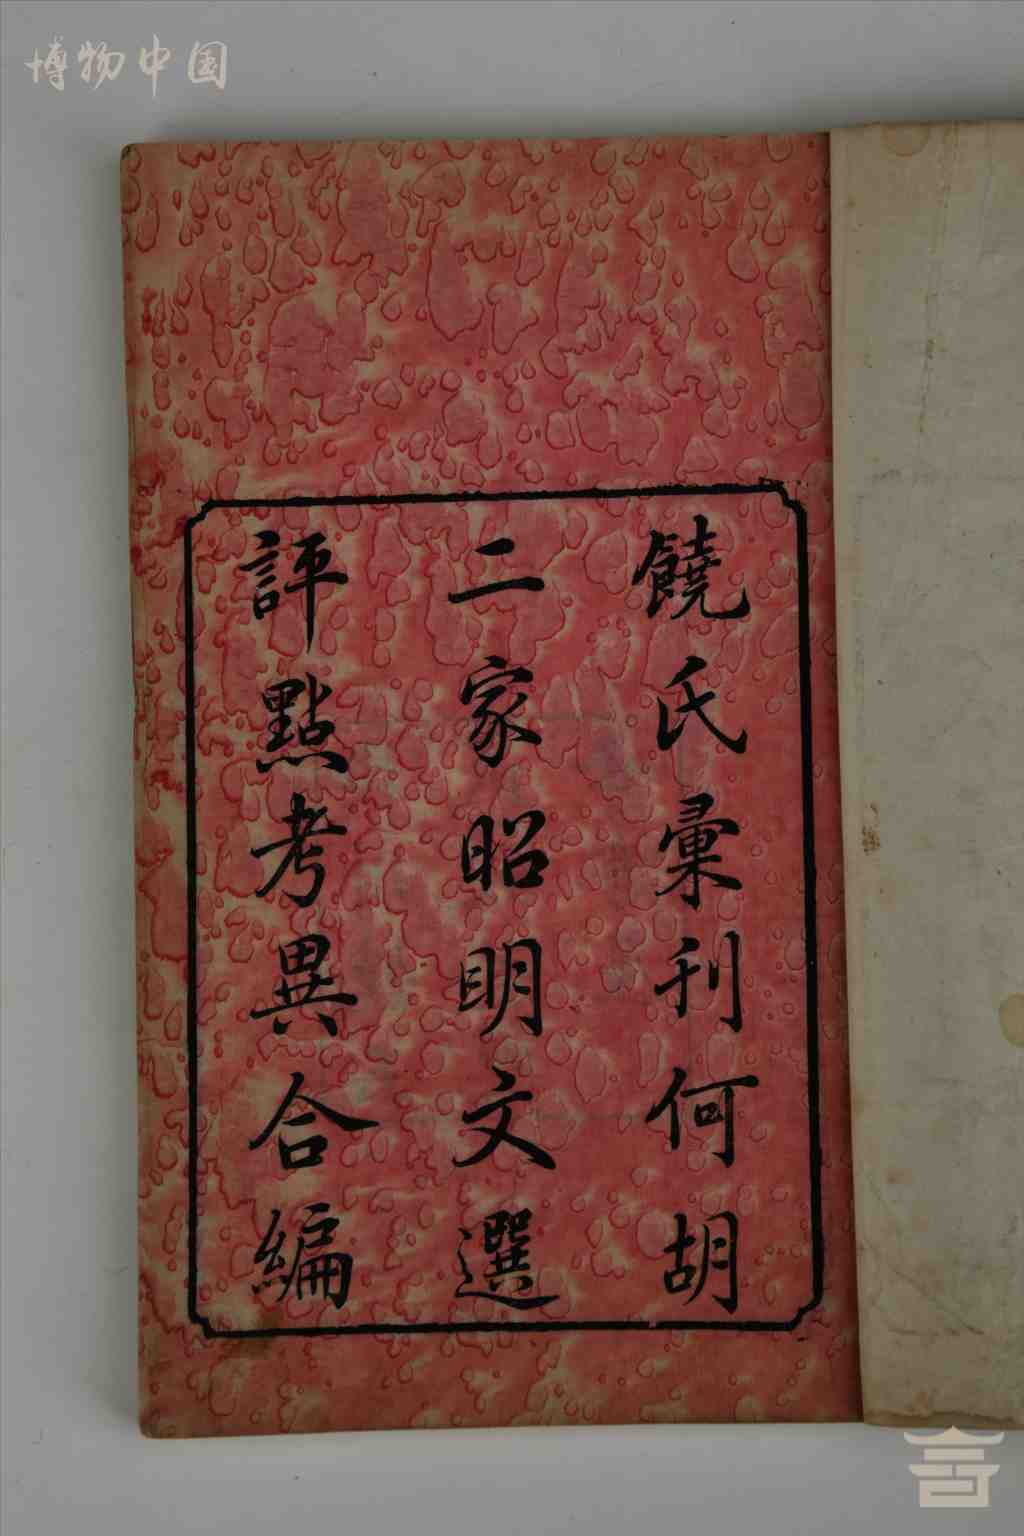 博物中国
饒氏彙刊何胡
二家昭明文選
評點考異合編